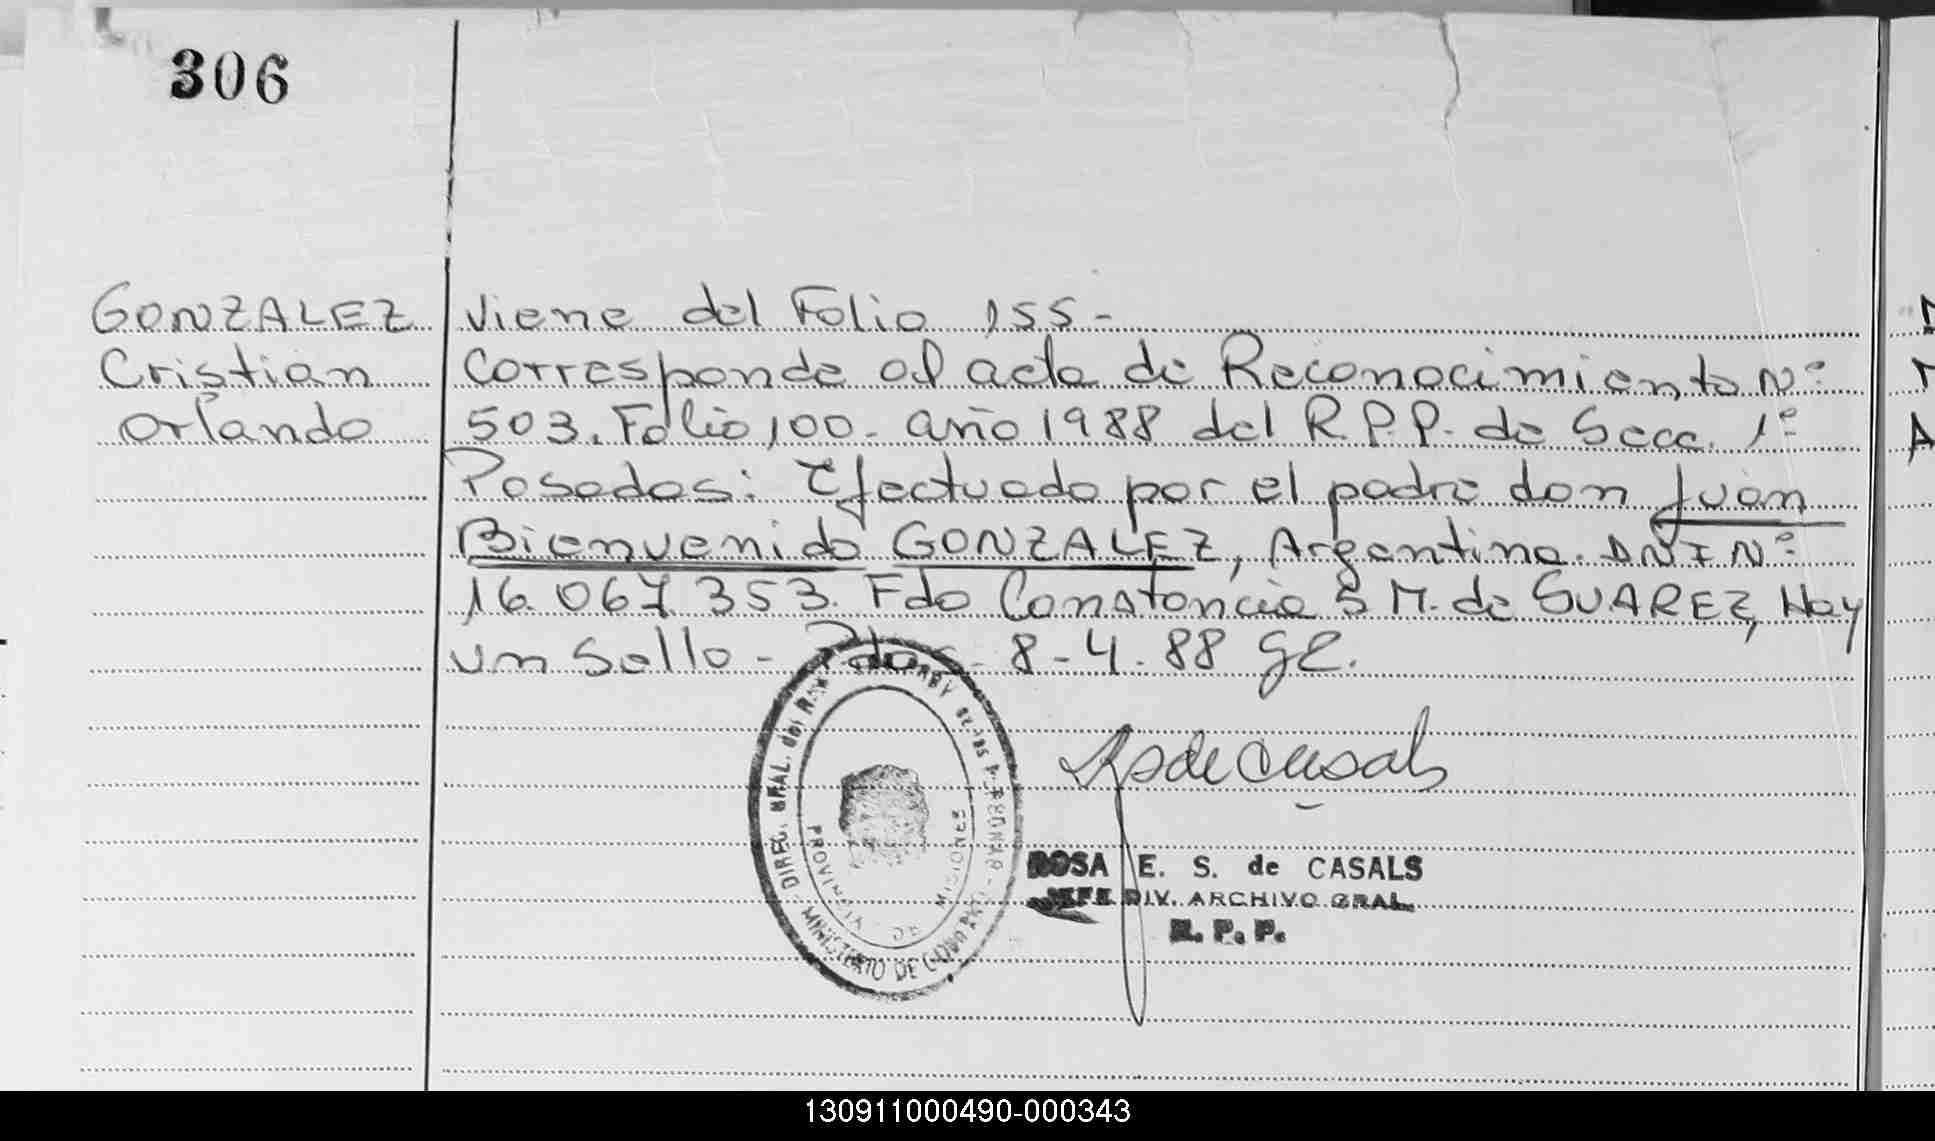 306
GONZALEZ
Cristian
Orlando
Viene del Folio 155-
Corresponde al acta de Reconocimiento Nº
503. Folio 100- año 1988 del R.P.P. de Secc. 1º
Posadas: Efectuado por el padre don Juan
Bienvenido GONZALEZ, Argentino. DNI Nº
16.067.353. Fdo Constancia S M. de SUAREZ, Hay
un Sello - Pdas- 8-4.88
DIREC. GRAL. del
MINISTERIO DE
PROVINCIA DE MISIONES
R S de Casals
ROSA E. S. de CASALS
JEFE DIV. ARCHIVO GRAL.
R. P. P.
130911000490-000343